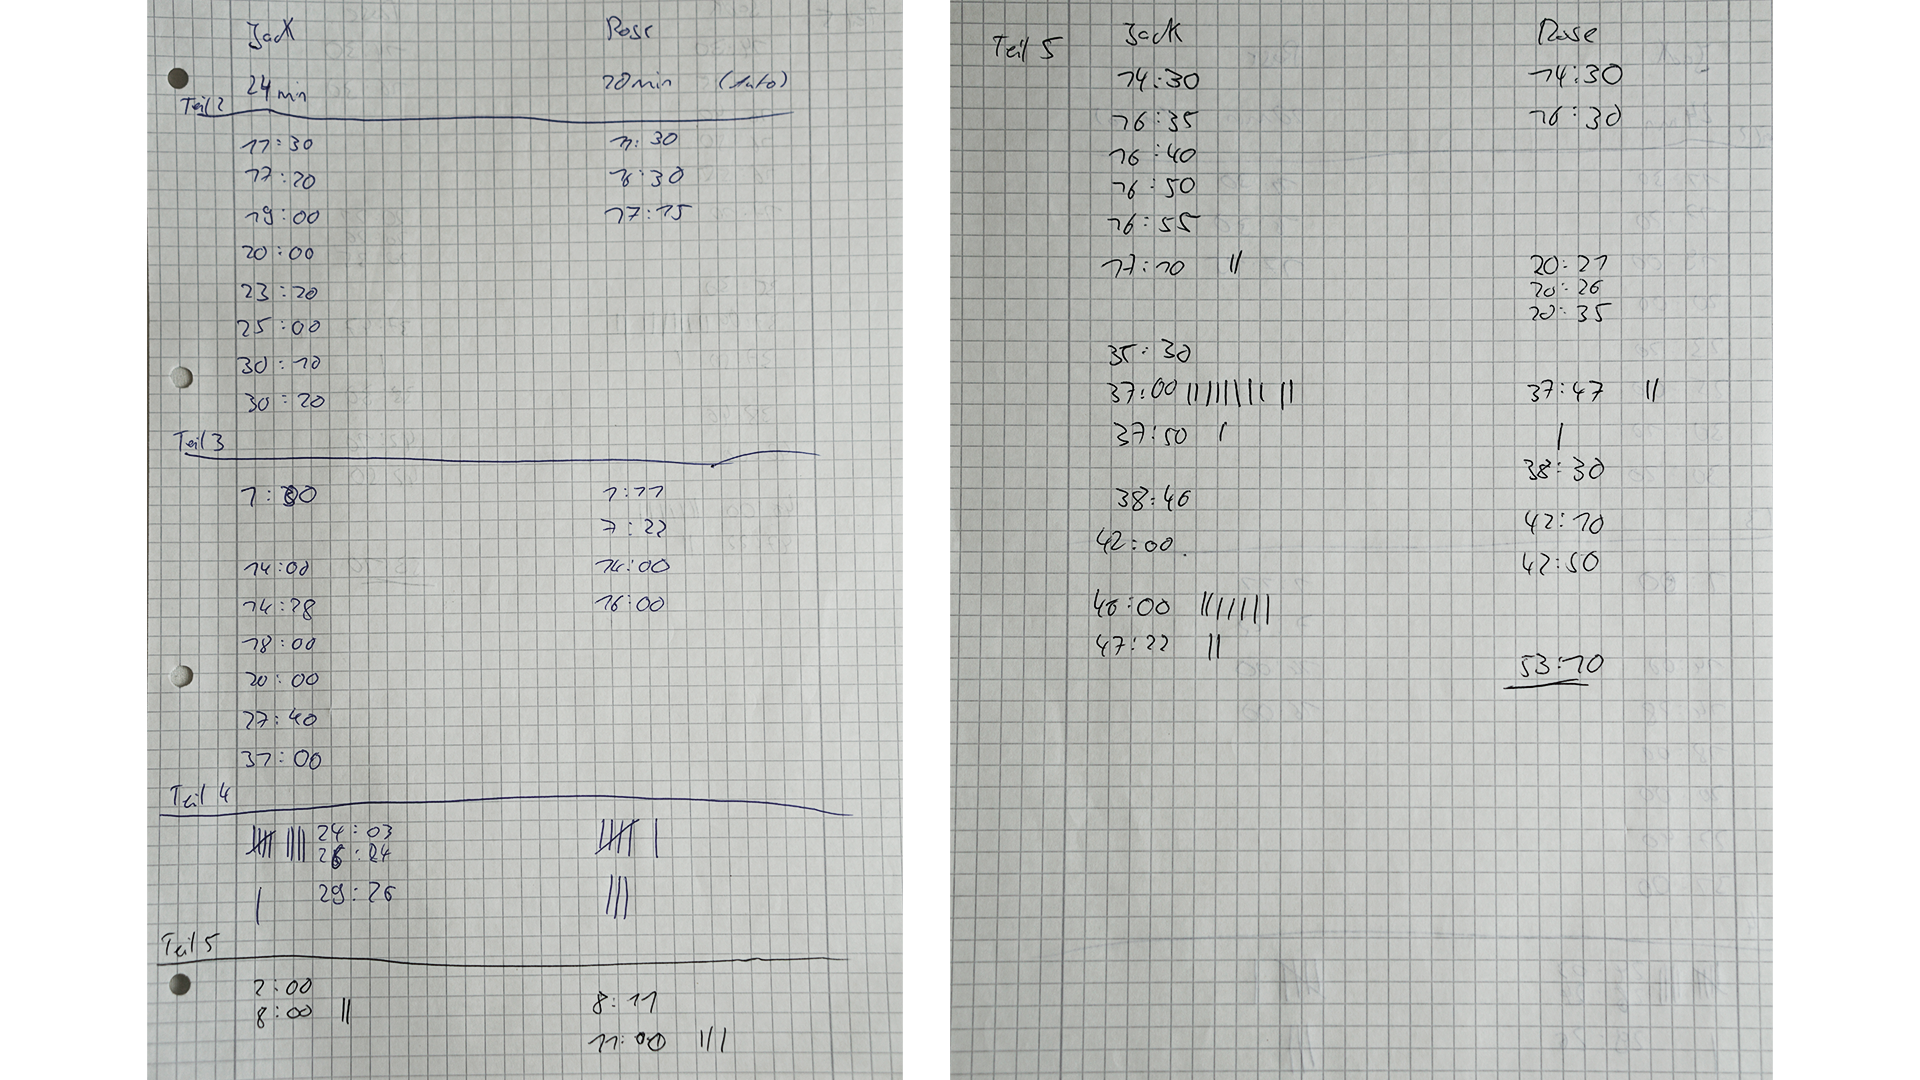 Jack Rose
24 min 20 min (Auto)
Teil 2
11:30 11:30
17:20 16:30
19:00 17:15
20:00
23:20
25:00
30:10
30:20
Teil 3
1:30 1:11
7:22
14:00 14:00
14:28 16:00
18:00
20:00
27:40
31:00
Teil 4
24:03
26:24
29:26
Teil 5
2:00
8:00 || 8:11
11:00 |||
Teil 5 Jack Rose
14:30 14:30
16:35 16:30
16:40
16:50
16:55
17:10 || 20:21
20:26
20:35
35:30
37:00 |||||||| || 37:47 ||
37:50 | |
38:30
38:46
42:10
42:00
42:50
46:00 |||||||
47:22 ||
53:10